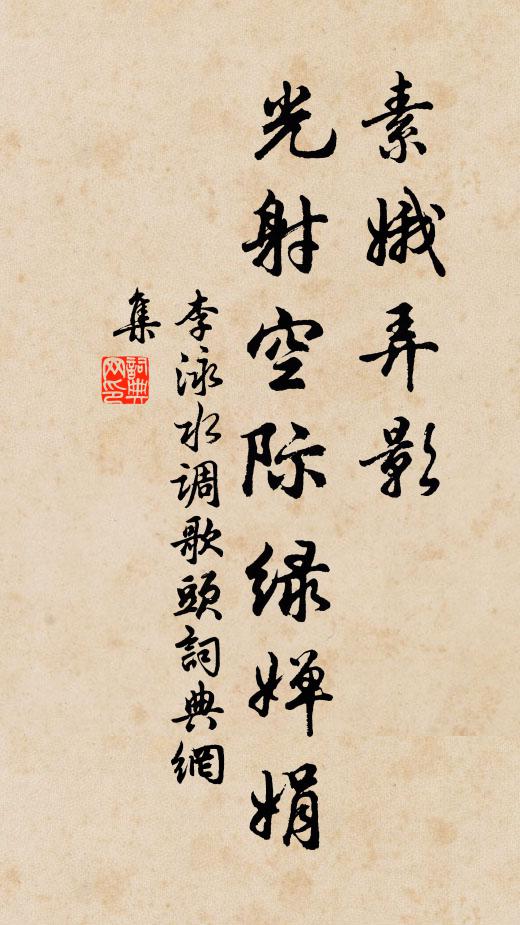 素娥弄影
光射空际绿婵娟
李泳水调歌頭詞典網
集
詞典网印